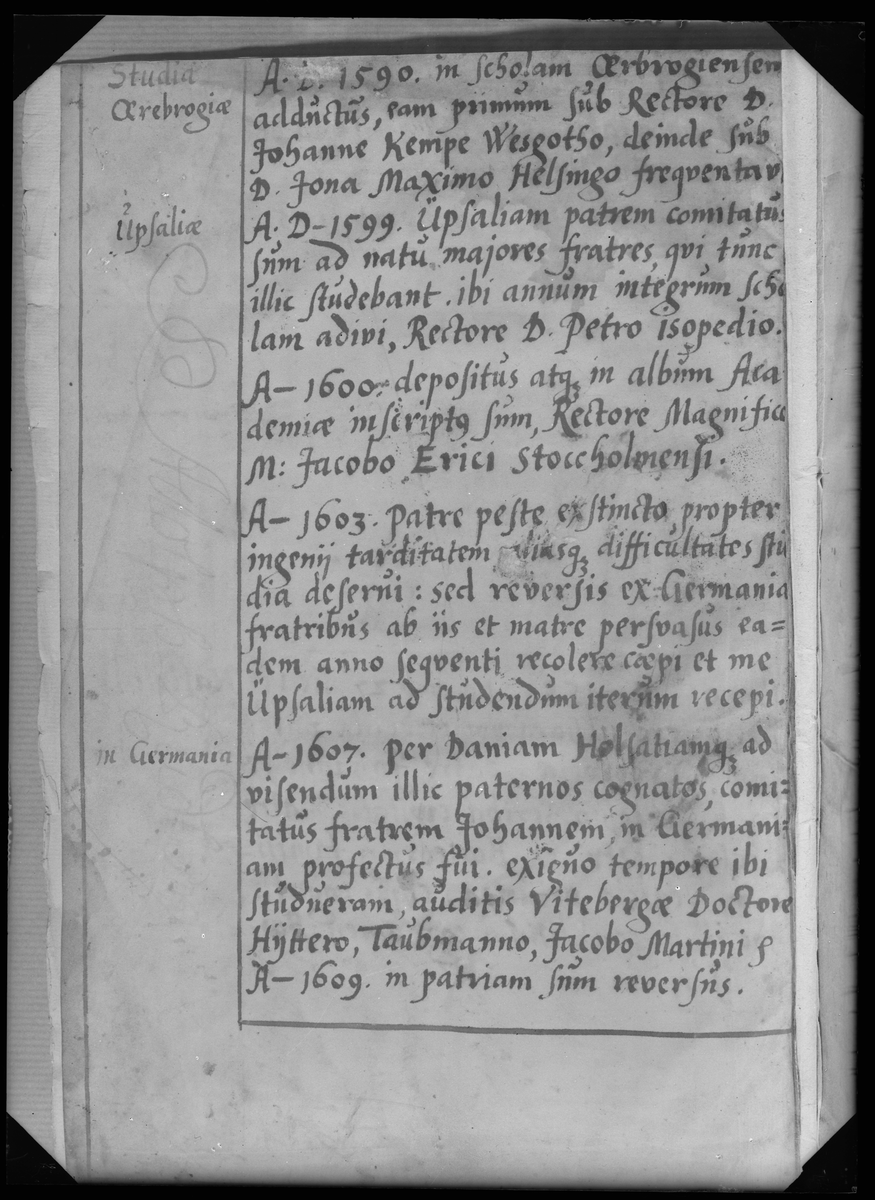 Studia
Œrebrogiæ
A. D. 1590. in scholam Œrbrogiensem
adductus, eam primum sub Rectore D.
Johanne Kempe Wesgotho, deinde sub
D. Jona Maximo Helsingo freqventav
2
Upsaliæ
A. D– 1599. Upsaliam patrem comitatus
sum ad natu majores fratres, qvi tunc
illic studebant. ibi annum integrum scho
lam adivi, Rectore D. Petro isopedio.
A– 1600. depositus atq; in album Aca
demiæ inscriptq sum, Rectore Magnifico
M: Jacobo Erici Stoccholmensi.
A– 1603. Patre peste exstincto, propter
ingenij tarditatem aliasq; difficultates stu
dia deserui : sed reversis ex Germania
fratribus ab iis et matre persvasus ea=
dem anno seqventi recolere cœpi et me
Upsaliam ad studendum iterum recepi.
in Germania
A– 1607. per Daniam Holsatiamq; ad
visendum illic paternos cognatos, comi=
tatus fratrem Johannem, in Germani=
am profectus fui. exiguo tempore ibi
studueram, auditis Vitebergæ Doctore
Hÿttero, Taubmanno, Jacobo Martini
A– 1609. in patriam sum reversus.